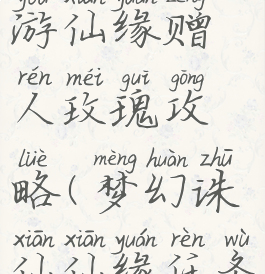 yóu xiān yuán zèng
游仙缘赠
rén méi guī gōng
人玫瑰攻
lüè mèng huàn zhū
略(梦幻诛
xiān xiān yuán rèn wù
仙仙缘任务